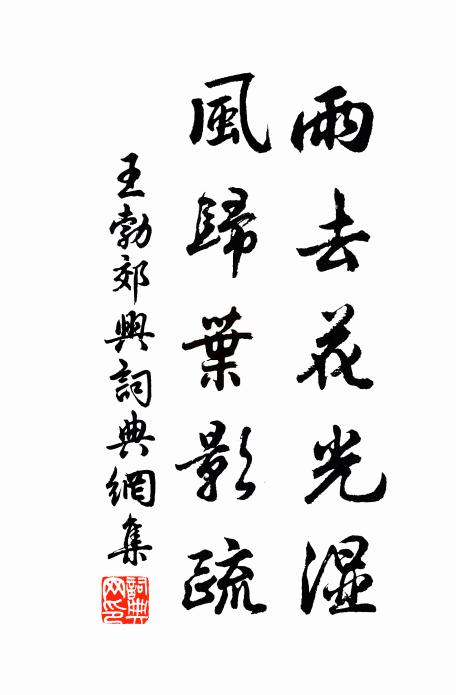 雨去花光濕
風歸葉影疏
王勃郊興詞典網集
詞典網印